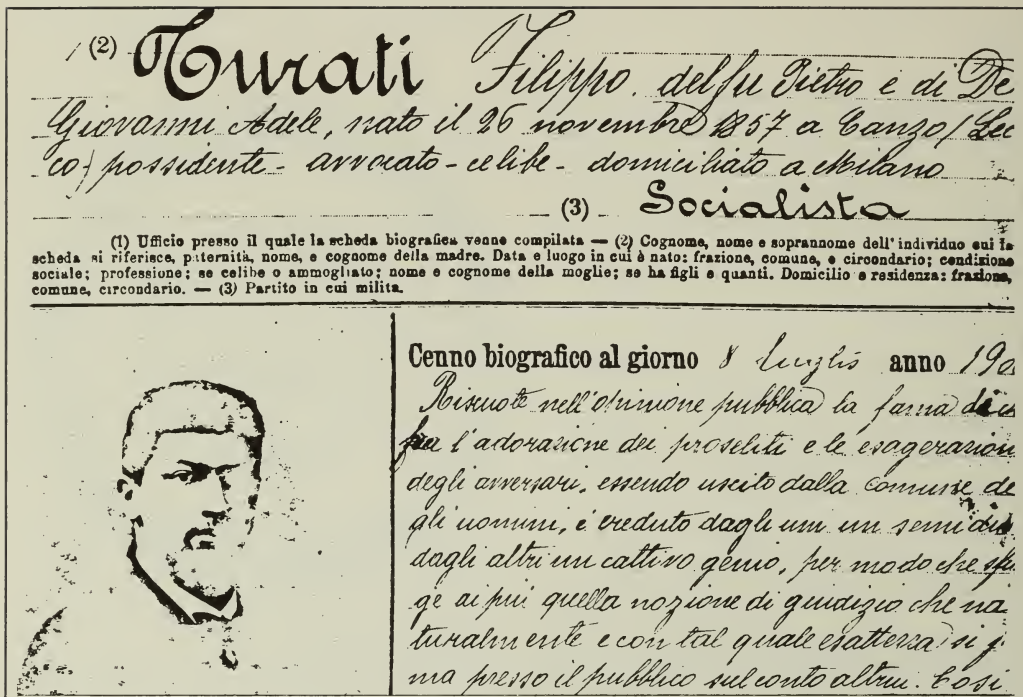 (2) Turati Filippo. del fu Pietro e di De
Giovanni Adele, nato il 26 novembre 1857 a Canzo (Lec
co) possidente - avvocato - celibe - domiciliato a Milano
(3) Socialista
(1) Ufficio presso il quale la scheda biografica venne compilata — (2) Cognome, nome e soprannome dell'individuo cui la
scheda si riferisce, paternità, nome, e cognome della madre. Data e luogo in cui è nato: frazione, comune, e circondario; condizione
sociale; professione; se celibe o ammogliato; nome e cognome della moglie; se ha figli e quanti. Domicilio e residenza: frazione,
comune, circondario. — (3) Partito in cui milita.
Cenno biografico al giorno 8 luglio anno 190
Riscuote nell'opinione pubblica la fama di
fra l'adorazione dei proseliti e le esagerazion
degli avversari, essendo uscito dalla comune de
gli uomini, è creduto dagli uni un semidio
dagli altri un cattivo genio, per modo che sfu
ge ai più quella nozione di giudizio che na
turalmente e con tal quale esattezza si f
ma presso il pubblico sul conto altrui. Così